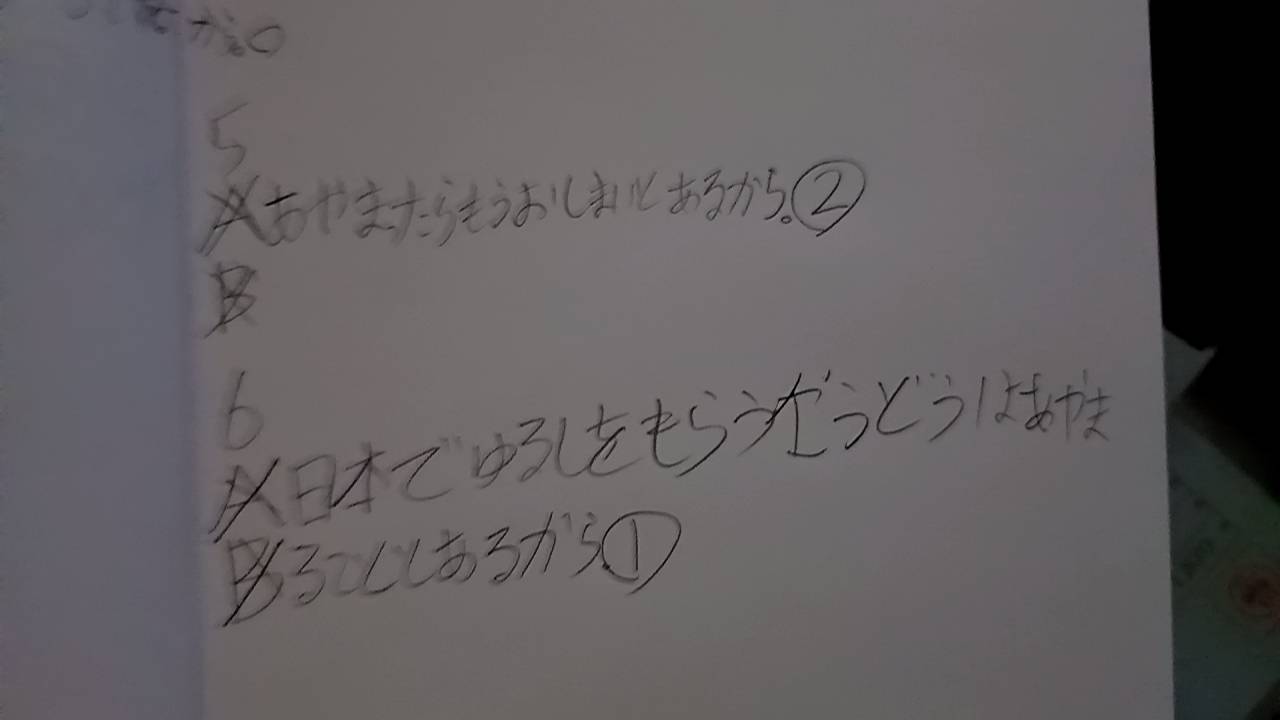 が。
5
Aあやまたらもうおしまいとあるから。②
B
6
A日本でゆるしをもらうだうどうはあやま
Bることとあるから。①